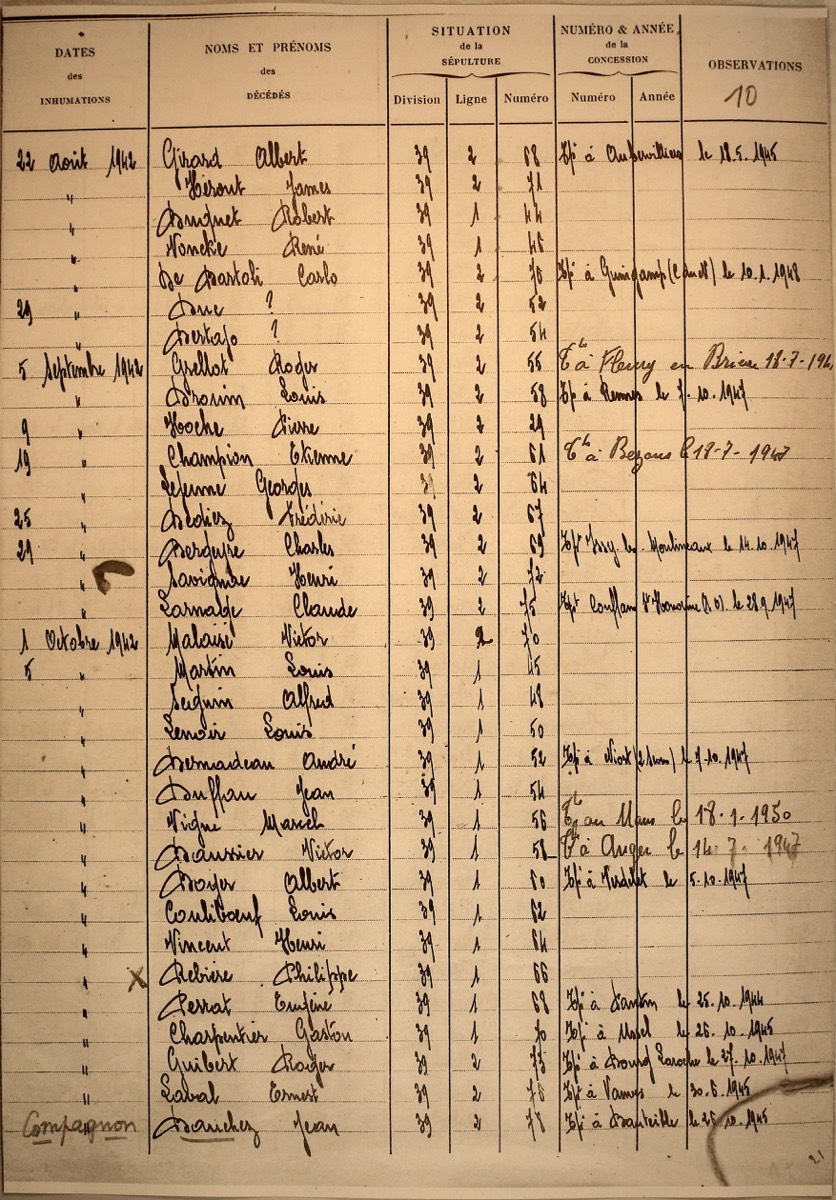 DATES des INHUMATIONS
NOMS ET PRÉNOMS des DÉCÉDÉS
SITUATION de la SÉPULTURE
NUMÉRO & ANNÉE de la CONCESSION
OBSERVATIONS
10
Division Ligne Numéro Numéro Année
22 Août 1942 Girard Albert 39 2 68 Tpt à Aubervilliers le 18.5.1945
" Hérout James 39 2 71
" Robert 39 1 44
" Voncke René 39 1 46
" De Bastoli Carlo 39 2 76 Tpt à Guingamp (C du N) le 10.1.1948
29 " Duc ? 39 2 52
" ? 39 2 54
5 Septembre 1942 Grellot Roger 39 2 55 à Fleury en Brière 18-7-194
" Drouin Louis 39 2 58 Tpt à Rennes le 7.10.1947
9 " Hoche Pierre 39 2 29
19 " Champion Etienne 39 2 61 à Bezons le 18-7-1947
" Lejeune Georges 39 2 64
25 " Dediez Frédéric 39 2 67
29 " Charles 39 2 69 Tpt Issy les Moulineaux le 14.10.1947
" Henri 39 2 72
" Larnaude Claude 39 2 75 Tpt Conflans Ste Honorine (S.O) le 28.9.1947
1 Octobre 1942 Malaisé Victor 39 2 70
5 " Martin Louis 39 1 45
" Seguin Alfred 39 1 48
" Lenoir Louis 39 1 50
" Desnardeau André 39 1 52 Tpt à Niort (2 Sèvres) le 7.10.1947
" Duffau Jean 39 1 54
" Vigne Marcel 39 1 56 au Mans le 18.1.1950
" Daussier Victor 39 1 58 à Anger le 14.7.1947
" Boyer Albert 39 1 60 Tpt à Verdelet le 5.10.1947
" Couliboeuf Louis 39 1 62
" Vincent Henri 39 1 64
" X Rebière Philippe 39 1 66
" Perrat Eugène 39 1 68 Tpt à Pantin le 25.10.1944
" Charpentier Gaston 39 1 70 Tpt à Ussel le 26.10.1945
" Guibert Roger 39 2 73 Tpt à le 27.10.1947
" Laval Ernest 39 2 76 Tpt à Vanves le 30.6.1945
Compagnon " Dauchez Jean 39 2 78 Tpt à le 26.10.1945
21